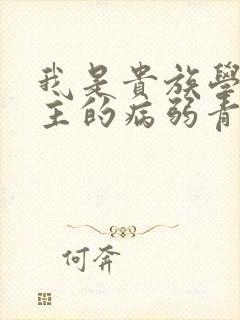 我是貴族學
主的病弱青
何奔